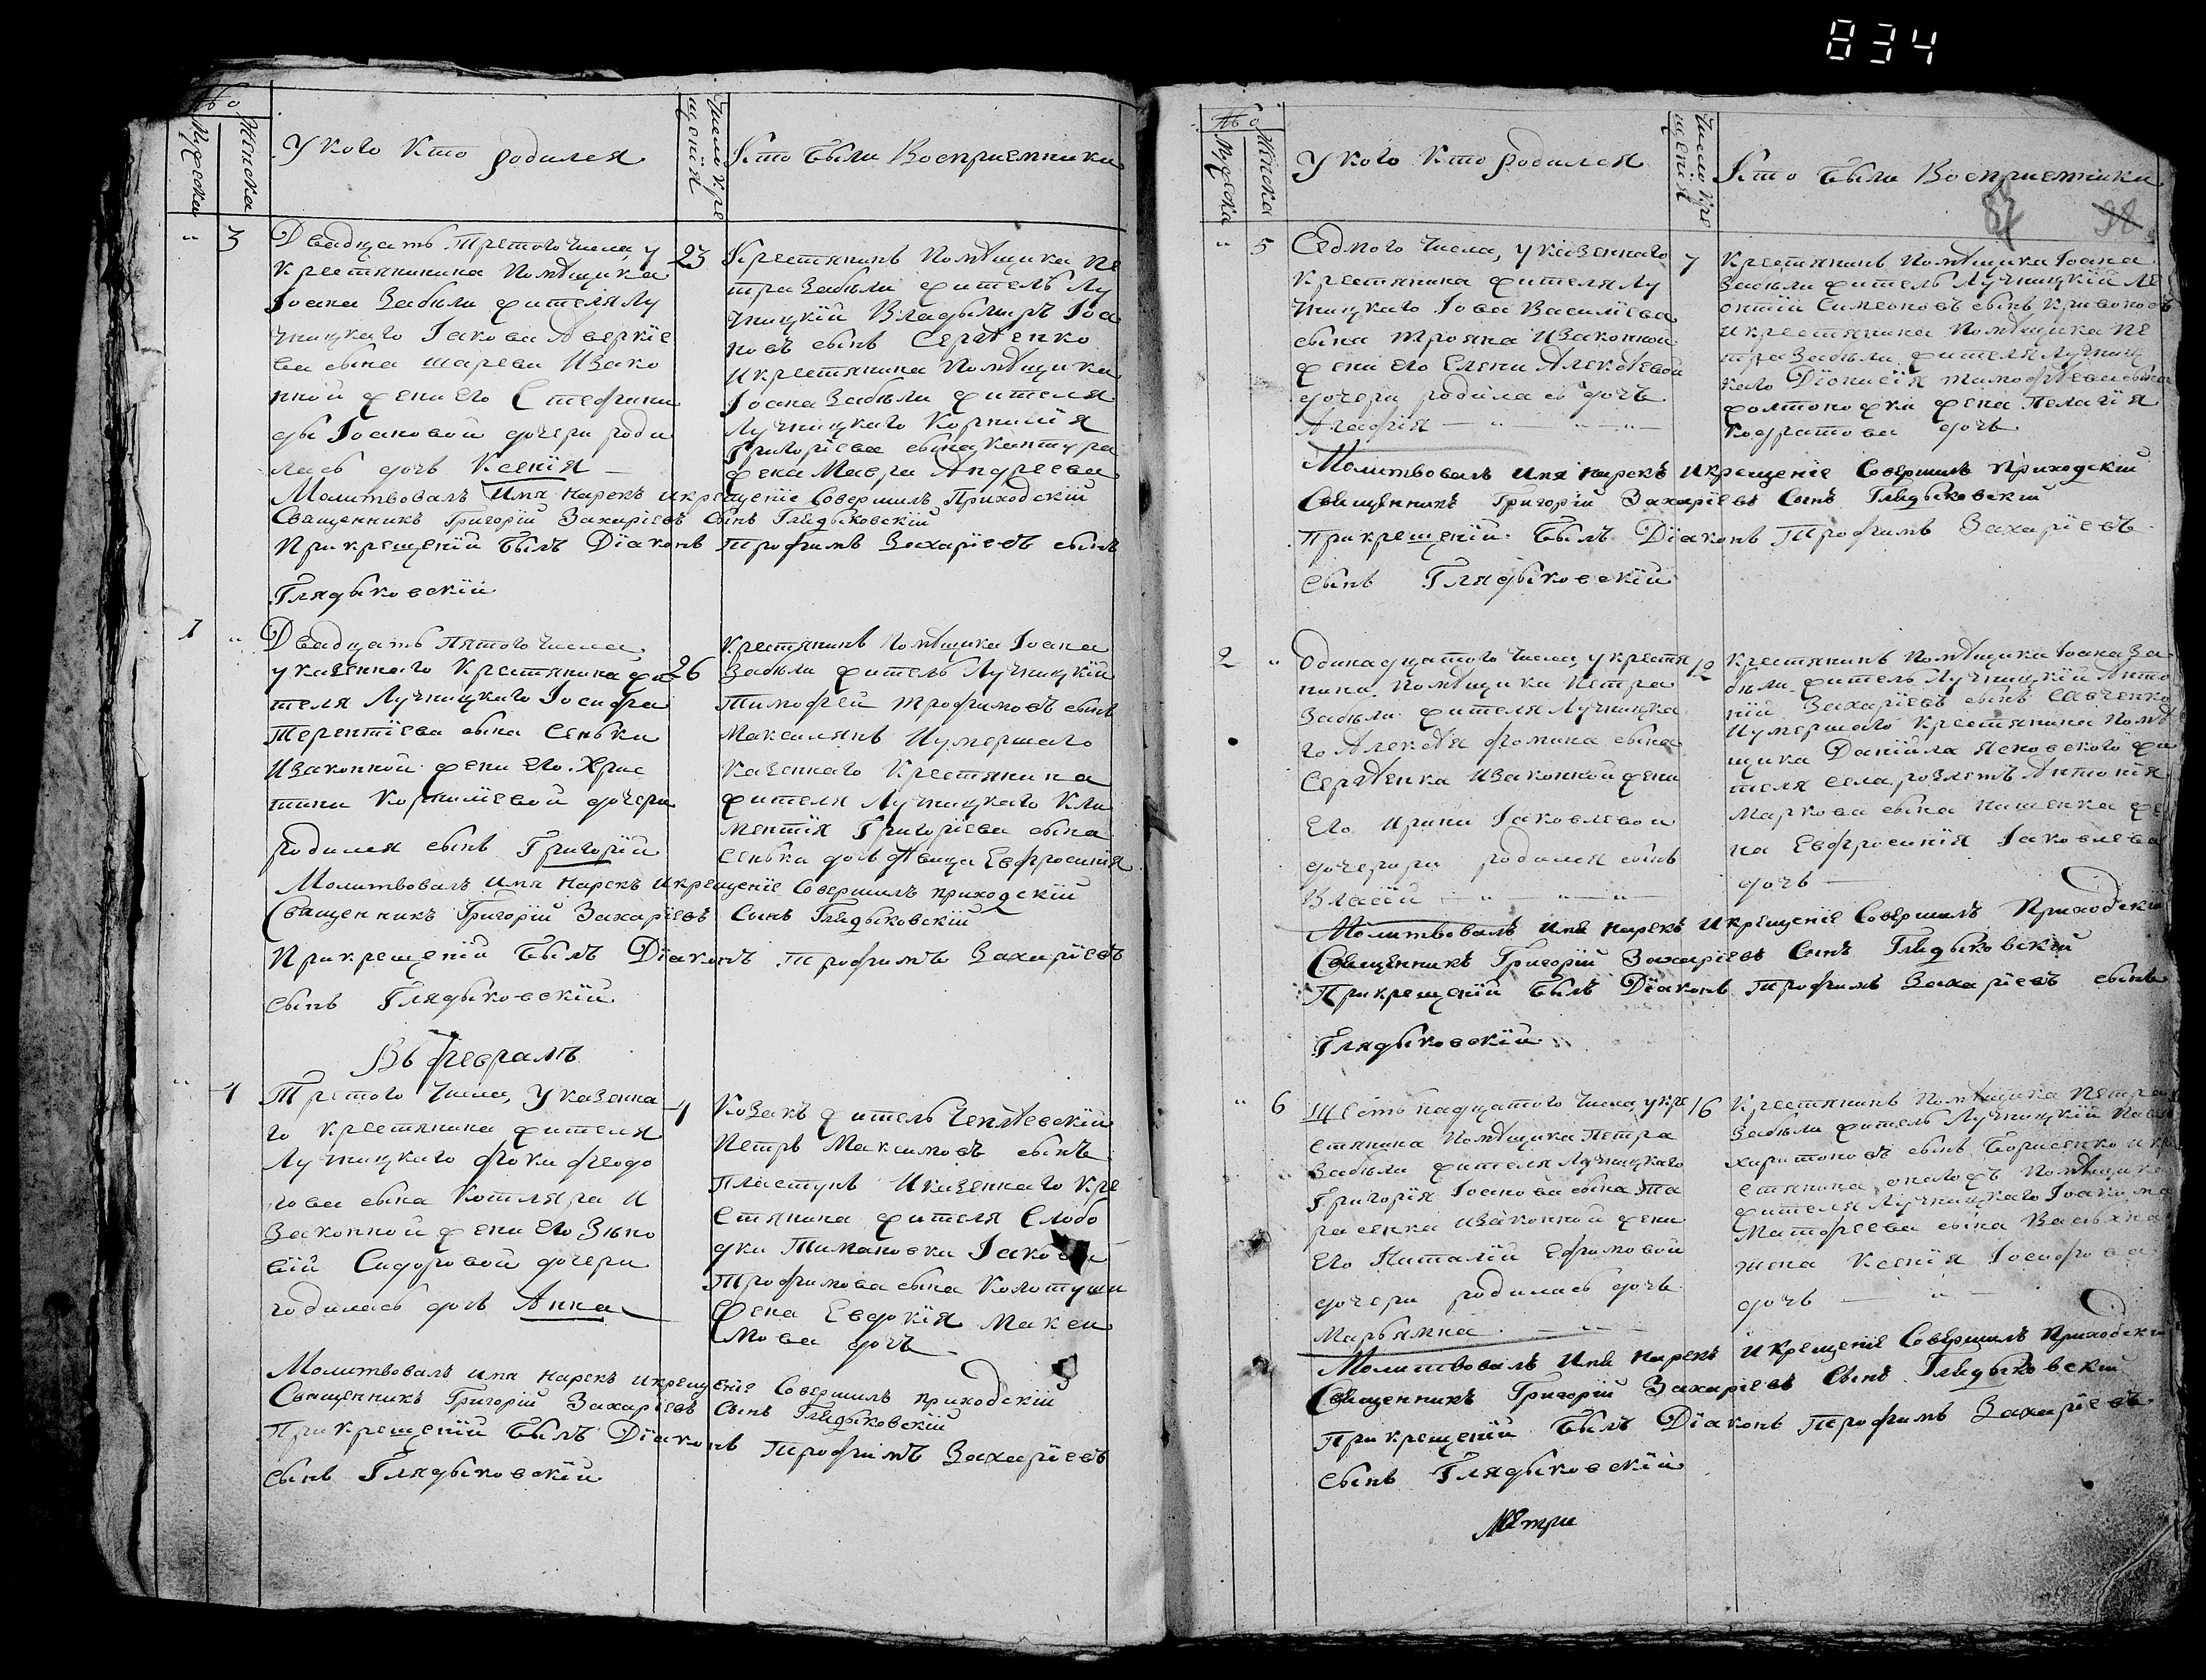 834
№
Мужеска
Женска
У кого кто родился
Число кре
щенія
Кто были Восприемники
" 3
Двадцать Третого числа, у
крестянина Помѣщика
Іоана Забѣли жителя Лу
чницкаго Іакова Аверкіе
ва сына Шарева и зако
нной жени его Стефани
ды Іоановой дочери роди
лась дочь Ксенія —
23
Крестянинъ Помѣщика Пе
тра Забѣли житель Лу
чницкій Владымиръ Іоа
новъ сынъ Сергѣенко
и крестянина Помѣщика
Іоана Забѣли жителя
Лучницкаго Корнилія
Григоріева сына Кантура
жена Мавра Андреева
Молитвовалъ Имя нарекъ и крещеніе Совершилъ Приходскій
Священникъ Григорій Захаріевъ Сынъ Глядыковскій
При крещеніи былъ Діаконъ Трофимъ Захаріевъ сынъ
Глядыковскій
1 "
Двадцать Пятого числа
у казенного Крестянина жи
теля Лучницкаго Іосифа
Терентіева сына Сенька
и законной жени его Хрис
тини Корниліевой дочери
родился сынъ Григорій
26
Крестянинъ Помѣщика Іоана
Забѣли житель Лучницкій
Тимофей Трофимовъ сынъ
Максимянъ и умершаго
казеннаго Крестянина
жителя Лучницкаго Кли
ментія Григоріева сына
Сенька дочь дѣвица Евфросинія
Молитвовалъ имя нарекъ и крещеніе Совершилъ приходскій
Священникъ Григорій Захаріевъ Сынъ Глядыковскій
При крещеніи былъ Діаконъ Трофимъ Захаріевъ
сынъ Глядыковскій
Въ февралѣ
" 4
Третого числа, у казенна
го крестянина жителя
Лучницкаго Фоки Феодо
рова сына Котляра и
законной жени его Зѣно
вій Сидоровой дочери
родилась дочь Анна
4
Козакъ житель Чеплѣевскій
Петръ Максимовъ сынъ
Пластунъ и казеннаго кре
стянина жителя Слобо
дки Тимановки Іакова
Трофимова сына Колотуши
жена Евдокія Макси
мова дочь
Молитвовалъ имя нарекъ и крещеніе Совершилъ приходскій
Священникъ Григорій Захаріевъ Сынъ Глядыковскій
При крещеніи былъ Діаконъ Трофимъ Захаріевъ
сынъ Глядыковскій
№
Мужеска
Женска
У кого кто родился
Число кре
щенія
Кто были Восприемники
38
" 5
Седмого числа, у казеннаго
крестянина жителя Лу
чницкаго Іова Василіева
сына Трояна и законной
жени его Елени Алексѣевой
дочери родилась дочь
Агафія — " — " —
7
Крестянинъ Помѣщика Іоана
Забѣли житель Лучницкій Ле
онтій Симеоновъ сынъ Кривоносъ
и крестянина Помѣщика Пе
тра Забѣли жителя Лучниц
каго Діонисія Тимофѣева сына
Жолтоножки жена Пелагія
Кодратова дочь
Молитвовалъ имя нарекъ и крещеніе Совершилъ приходскій
Священникъ Григорій Захаріевъ Сынъ Глядыковскій
При крещеніи былъ Діаконъ Трофимъ Захаріевъ
сынъ Глядыковскій
2 "
Одинадцатого числа, у крестя
нина Помѣщика Петра
Забѣли жителя Лучницка
го Алексѣя Фомина сына
Сергѣенка и законной жени
его Ирини Іаковлевой
дочерри родился сынъ
Власій — " — " —
12
Крестянинъ Помѣщика Іоана За
бѣли житель Лучницкій Анто
ній Захаріевъ сынъ Савченко
и умершаго крестянина помѣ
щика Даніила Ясновского жи
теля села Розлетъ Антонія
Маркова сына Пашенка же
на Евфросинія Іаковлева
дочь —
Молитвовалъ имя нарекъ и крещеніе Совершилъ Приходскій
Священникъ Григорій Захаріевъ Сынъ Глядыковскій
При крещеніи былъ Діаконъ Трофимъ Захаріевъ сынъ
Глядыковскій
" 6
Шестьнадцатого числа, у кре
стянина Помѣщика Петра
Забѣли жителя Лучницкаго
Григорія Іоанова сына Та
расенка и законной жени
его Наталіи Ефимовой
дочери родилась дочь
Марьямна — —
16
Крестянинъ Помѣщика Петра
Забѣли житель Лучницкій
Харитоновъ сынъ Борисенко и кре
стянина Помѣщика
жителя Лучницкаго Іоакима
Матфеева сына
жена Ксенія Іосифова
дочь — " —
Молитвовалъ имя нарекъ и крещеніе Совершилъ приходскій
Священникъ Григорій Захаріевъ Сынъ Глядыковскій
При крещеніи былъ Діаконъ Трофимъ Захаріевъ
сынъ Глядыковскій
Метри